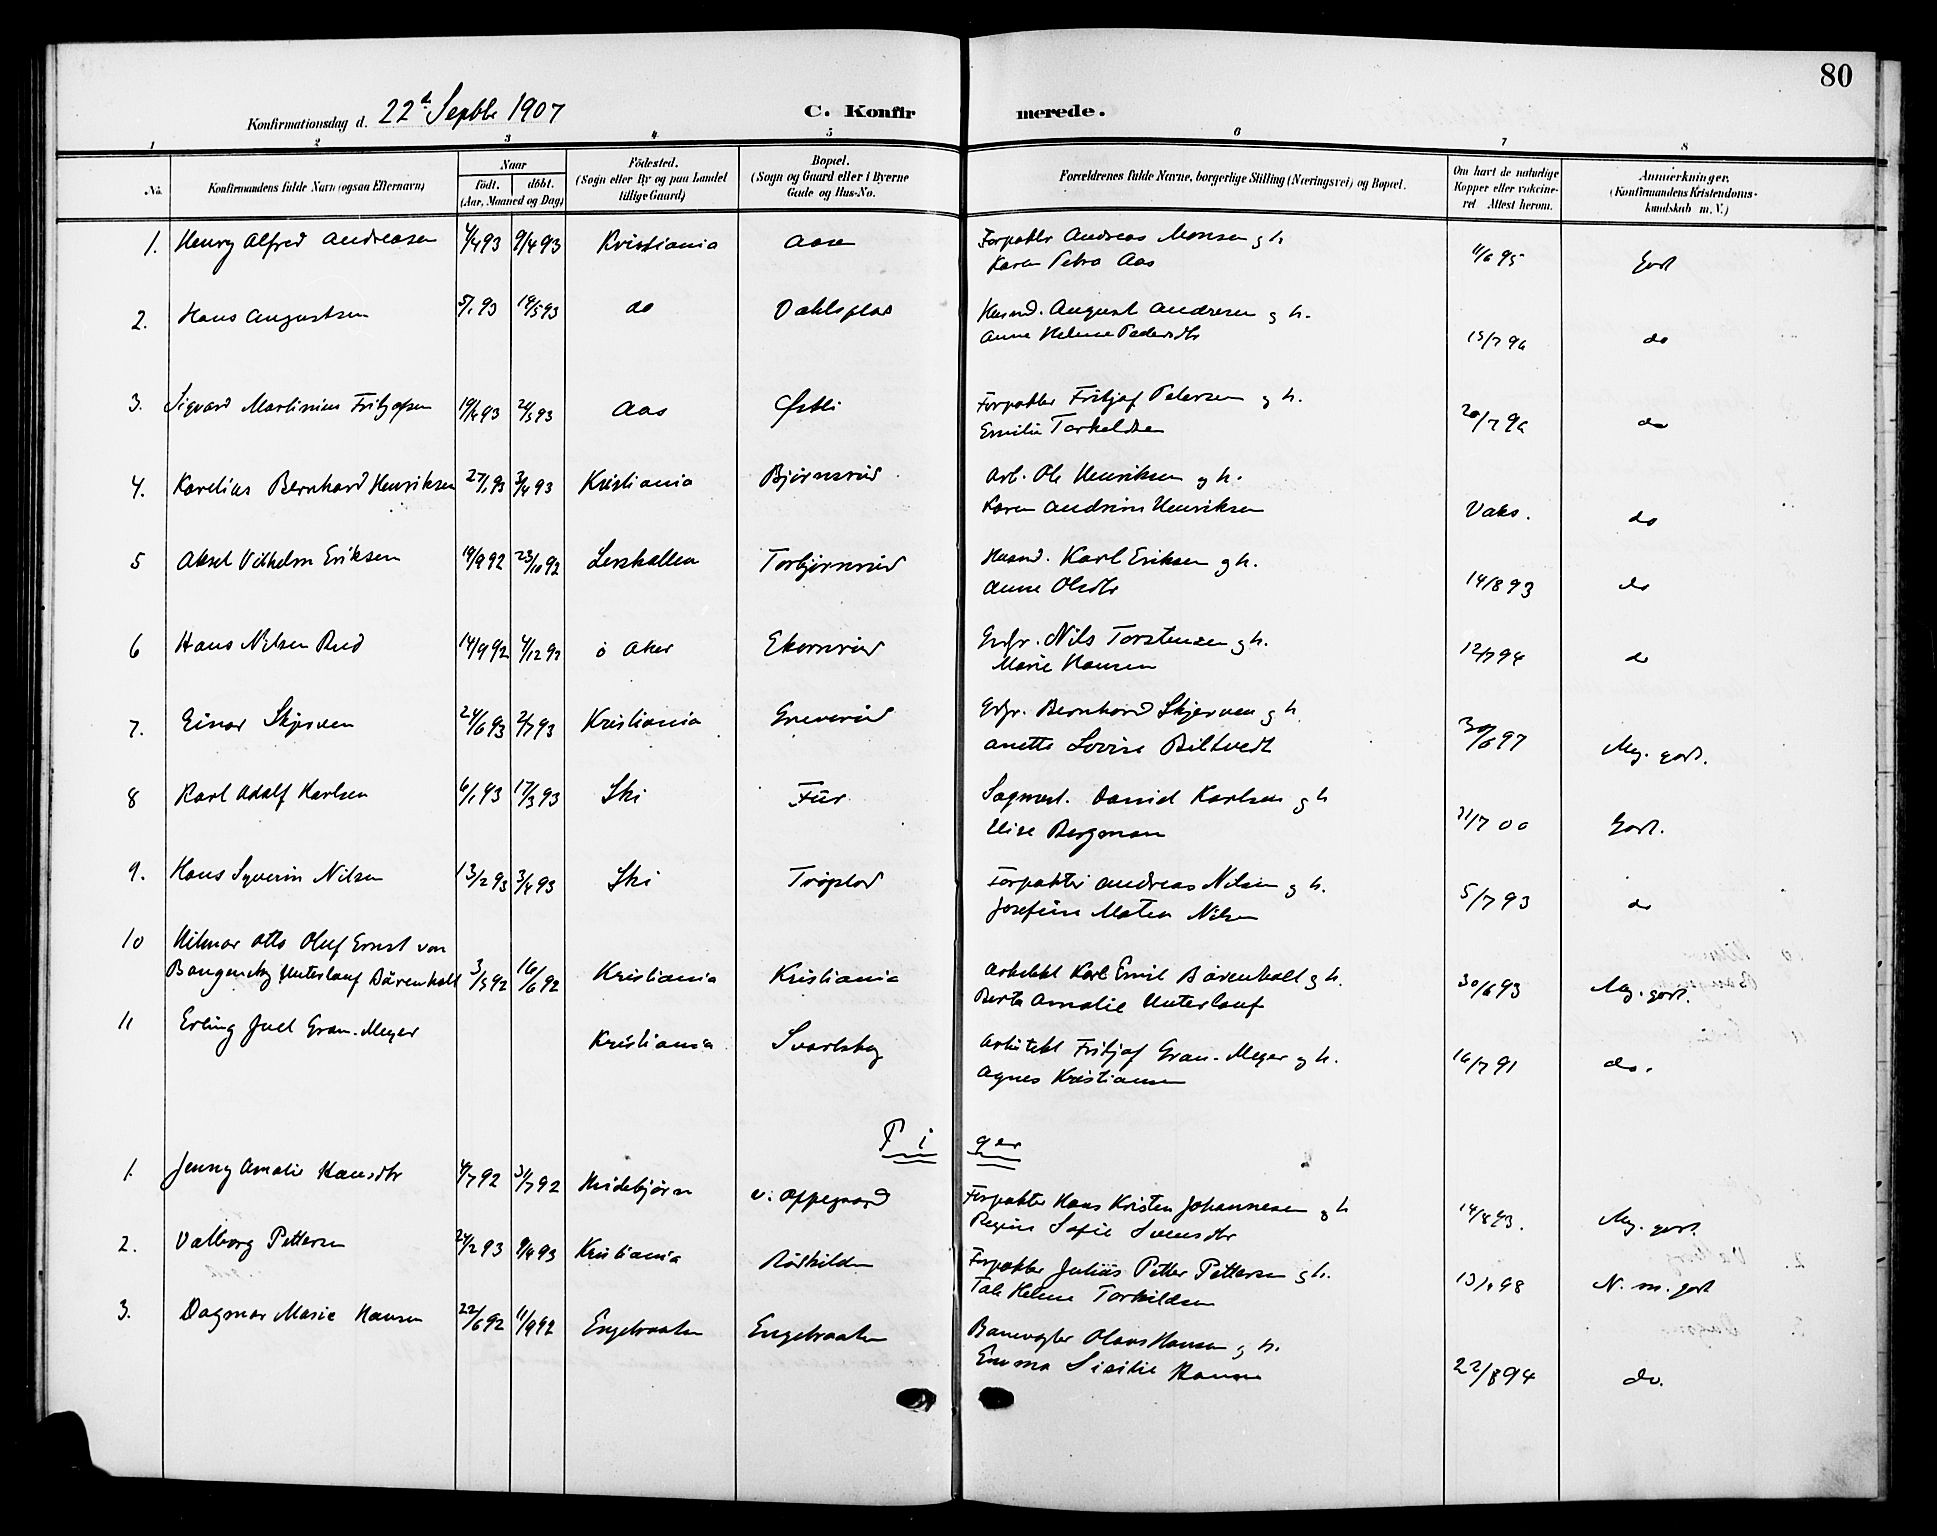 80
Konfirmationsdag d. 22d Septbr 1907
C. Konfirmerede.
1 2 3 4 5 6 7 8
No. Konfirmandens fulde Navn (ogsaa Efternavn) Naar født. døbt. (Aar, Maaned og Dag) Fødested. (Sogn eller By og paa Landet tillige Gaard) Bopæl. (Sogn og Gaard eller i Byerne Gade og Hus-No. Forældrenes fulde Navne, borgerlige Stilling (Næringsvei) og Bopæl. Om havt de naturlige Kopper eller vakcineret Attest herom. Anmerkninger. (Konfirmandens Kristendomskundskab m. V.)
1. Henry Alfred Andreasen 4/4 93 9/4 93 Kristiania Aasen Forpakter Andreas Monsen g h.
Karen Petra Aas 11/6 95 Godt
2. Hans Augustsen 5/1 93 14/5 93 do Dahlsplas Husmd. August Andresen g h.
Anne Helene Pedersdtr 15/7 96 do
3. Sigvard Martinius Fritjofsen 19/4 93 24/5 93 Aas Østli Forpakter Fritjof Petersen g h.
Emilie Torkeldsen 20/7 96 do
4. Karelius Bernhard Henriksen 27/1 93 3/4 93 Kristiania Bjørnsrud Arb. Ole Henriksen g h.
Karen Andrine Henriksen Vaks. do
5 Aksel Vilhelm Eriksen 19/9 92 23/10 92 Torbjørnsrud Husmd. Karl Eriksen g h.
Anne Olsdtr 14/8 93 do
6 Hans Nilsen Rud 14/9 92 4/12 92 ø Aker Ekornrud Grdbr. Nils Torstensen g h.
Marie Hansen 12/7 94 do
7. Einar Skjerven 24/6 93 2/7 93 Kristiania Greverud Grbr. Bernhard Skjerven g h
Anette Lovise Biltvedt 30/6 97 Meg. godt.
8 Karl Adolf Karlsen 6/1 93 17/3 93 Ski Fur Sagmest. David Karlsen g h
Elise Bergman 21/7 00 Godt.
9. Hans Syverin Nilsen 13/2 93 3/4 93 Ski Forpakter Andreas Nilsen g h.
Josefine Matea Nilsen 5/7 93 do
10 Hilmar Otto Oluf Ernst von
Unterlauf Bärenholt 3/5 92 16/6 92 Kristiania Kristiania Arkitekt Karl Emil Bärenholt g h.
Berta Amalie Unterlauf 30/6 93 Meg. godt.
11 Erling Juel Gran-Meyer Kristiania Svartskog Arkitekt Fritjof Gran-Meyer g h.
Agnes Kristiansen 16/7 91 do.
Piger
1. Jenny Amalie Hansdtr 4/7 92 31/7 92 Hvidebjørn v. Oppegaard Forpakter Hans Kristen Johannesen g h
Regine Sofie Svensdtr 14/8 93. Meg. godt.
2. Valborg Pettersen 24/2 93 9/4 93 Kristiania Forpakter Julius Petter Pettersen g h.
Helene Torkildsen 13/1 98 N. m. godt
3. Dagmar Marie Hansen 22/6 92 11/9 92 Engebraaten Engebraaten Banevogter Olaus Hansen g h.
Emma Sisilie Hansen 22/8 94 do.